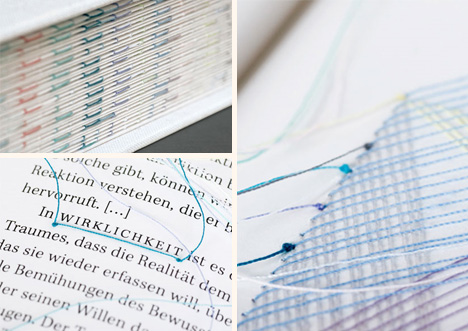 solche gibt, können wir
Reaktion verstehen, die er b
hervorruft. [...]
In WIRKLICHKEIT ist es d
Traumes, dass die Realität dem
das sie wieder erfassen will, übe
le Bemühungen des Bewuss
der seinen Willen de
ugen. Der T